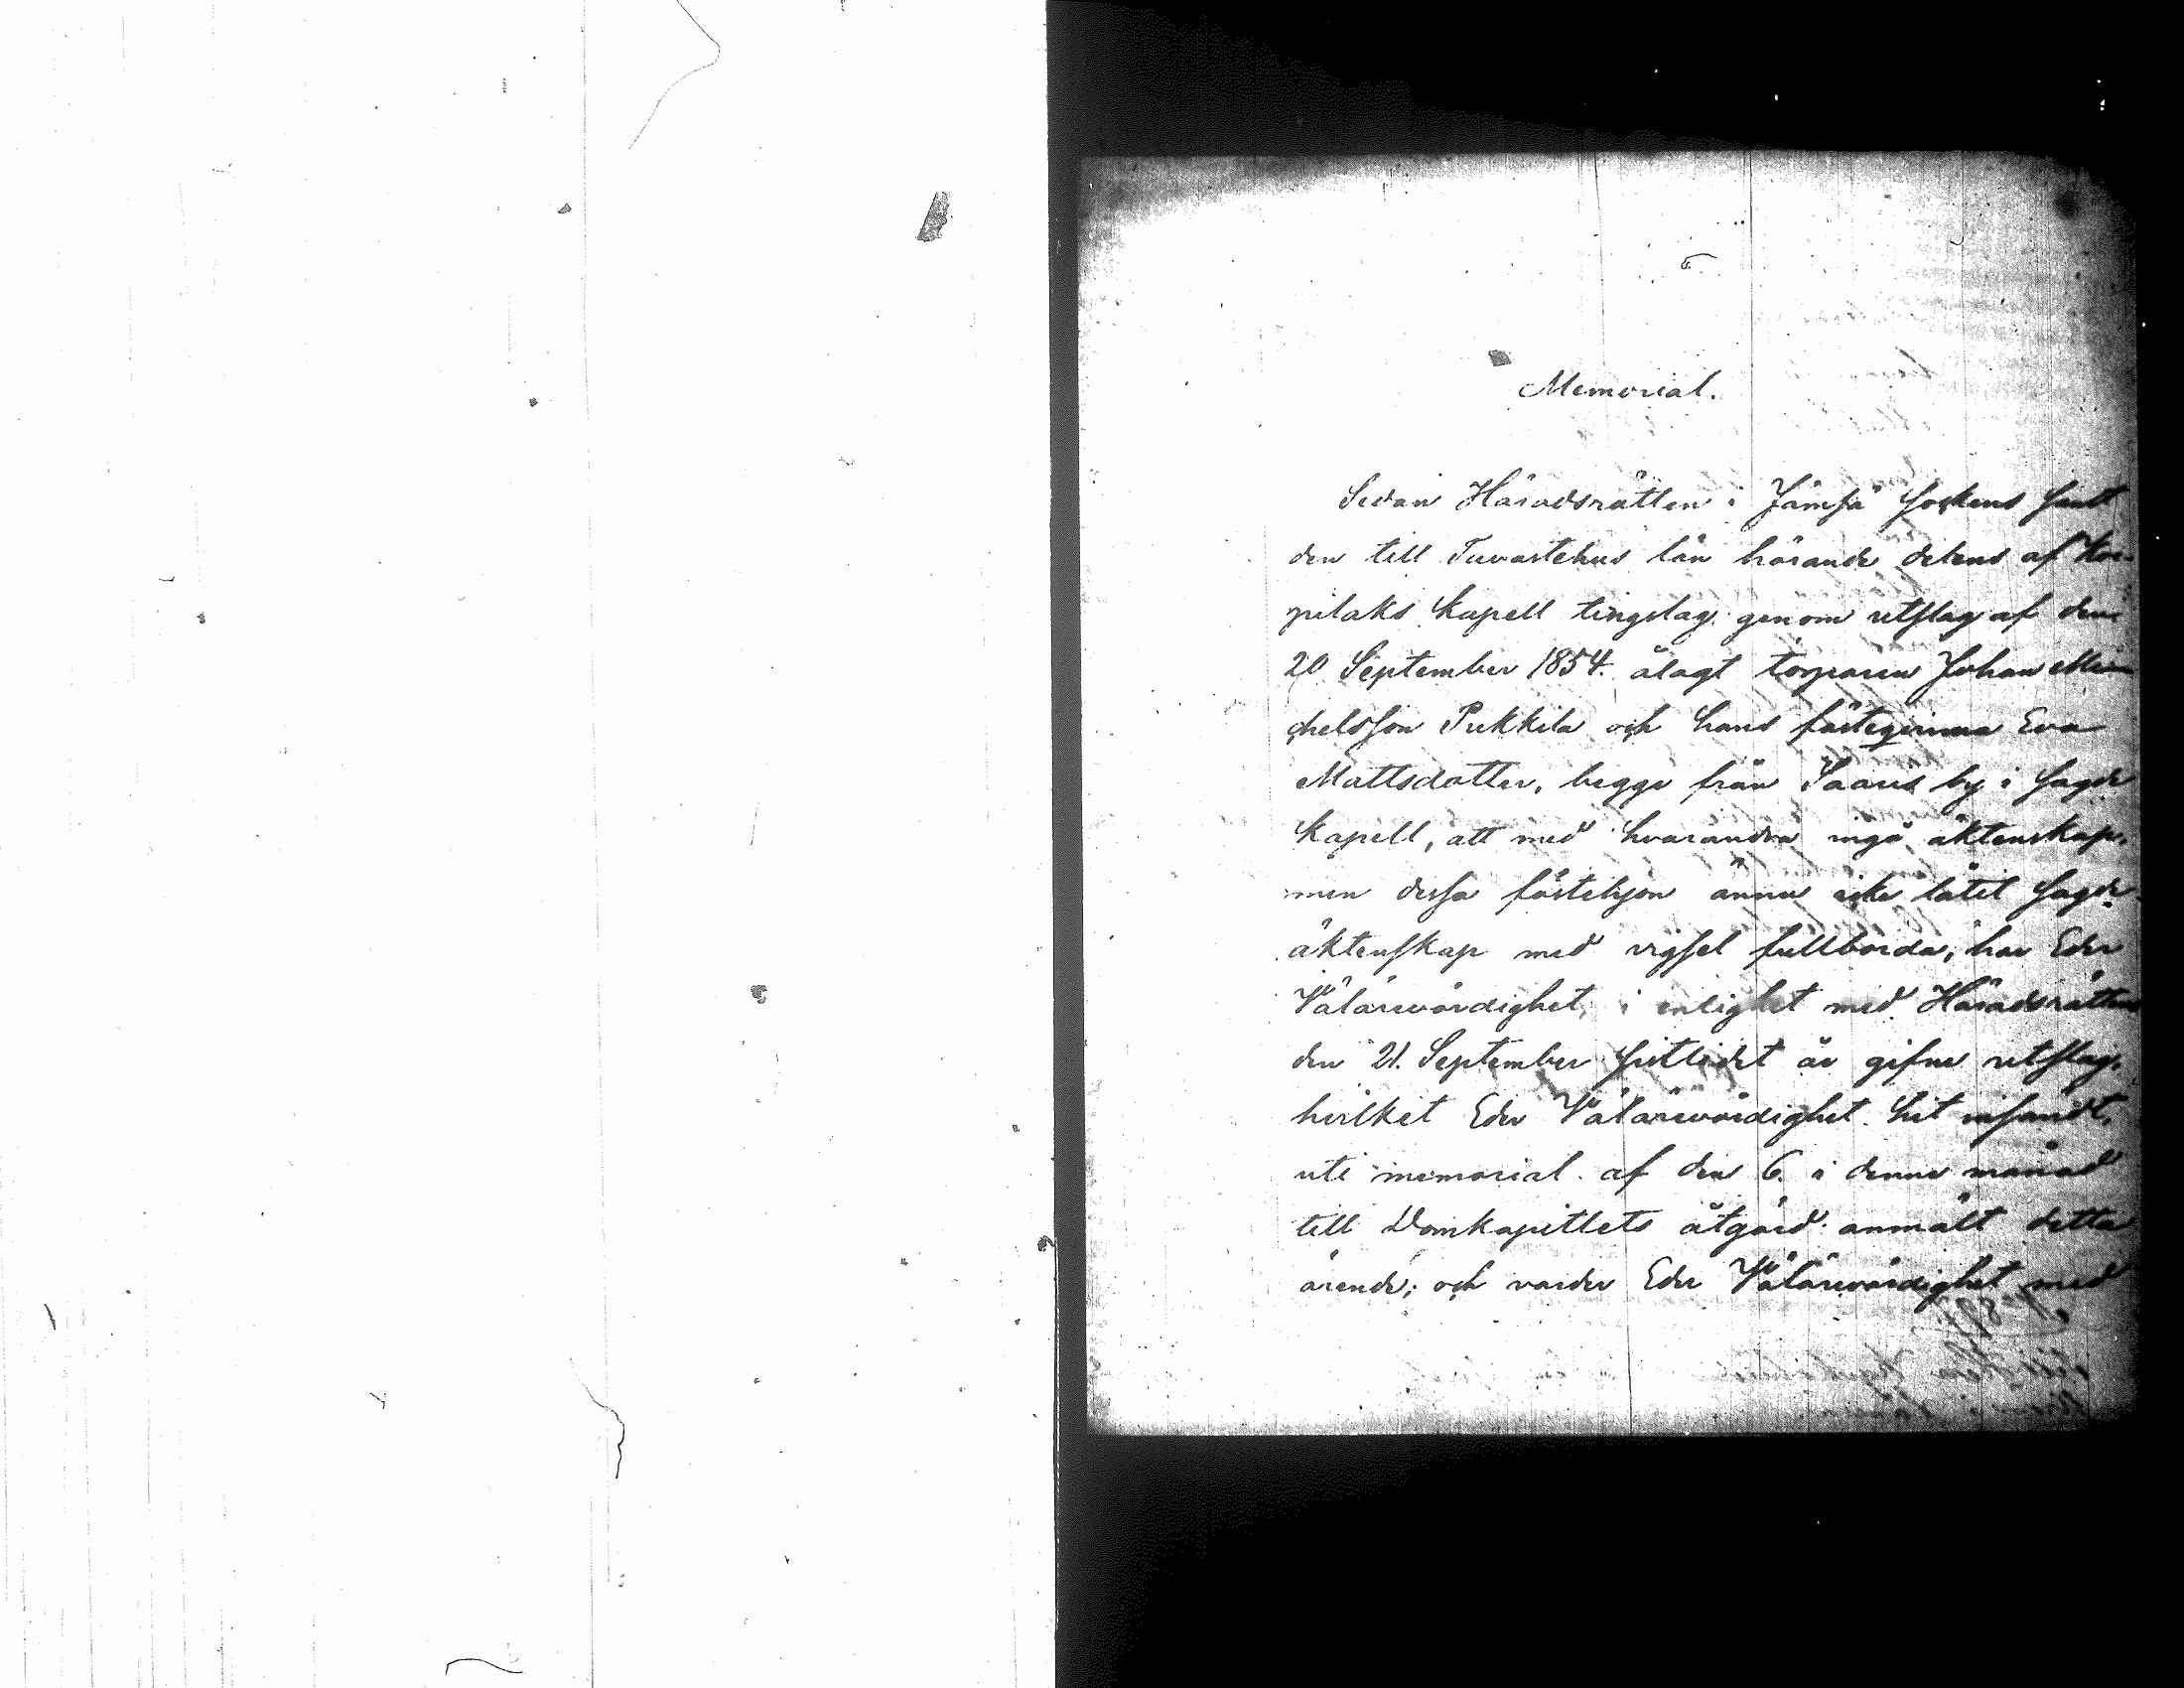 Memorial.
Sedan Häradsrätten i Jämsä Sockens samt
den till Tavastehus län hörande delens af Kor-
pilaks kapell tingslag genom utslag af den
20 September 1854. ålagt torparen Johan Mi-
chelsson Pukkila och hans fästeqvinna Eva
Mattsdotter, begge från Saaris by i sagde
kapell, att med hvarandra ingå äktenskap,
men dessa fästehjon ännu icke låtit sagde
äktenskap med vigsel fullborda, har Eder
Välärevördighet, i enlighet med Häradsrättens
den 21. September sistledet år gifne utslag,
hvilket Eder Välärevördighet hit insändt,
uti memorial af den 6. i denne månad
till Domkapitlets åtgärd anmält detta
ärende; och varder Eder Välärevördighet med